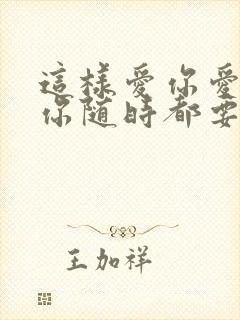 這樣愛你愛
你随時都要
王加祥